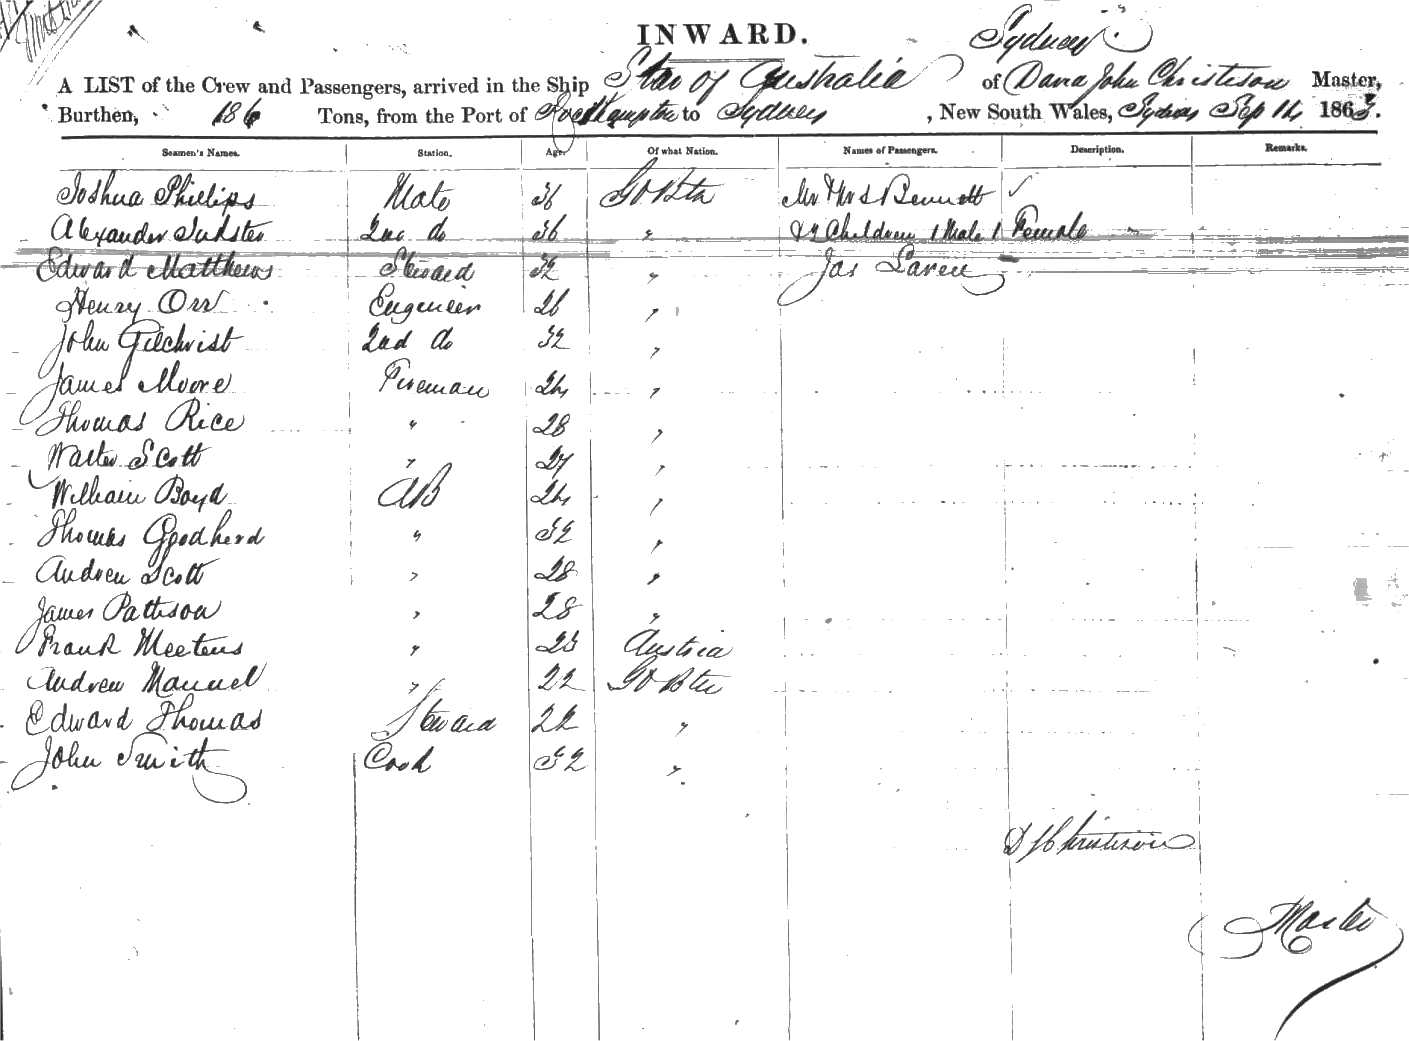 Sydney
INWARD.
A LIST of the Crew and Passengers, arrived in the Ship Star of Australia of David John Christison Master,
Burthen, 186 Tons, from the Port of Rockhampton to Sydney , New South Wales, Sydney Sep 14 1863.
Seamen's Names. Station. Age. Of what Nation. Names of Passengers. Description. Remarks.
Joshua Phillips Mate 36 Gt Btn Mr & Mrs Bennett
Alexander 2nd do 36 " & 2 Children 1 Male 1 Female
Edward Matthews Steward 32 " Jas
Henry Orr Engineer 26 "
John Gilchrist 2nd do 32 "
James Moore Fireman 24 "
Thomas Rice " 28 "
Walter Scott " 27 "
William Boyd AB 24 "
Thomas Goodherd " 32 "
Andrew Scott " 28 "
James Pattison " 28 "
Frank Meetens " 23 Austria
Andrew Manuel " 22 Gt Btn
Edward Thomas Steward 22 "
John Smith Cook 32 "
D J Christison
Master